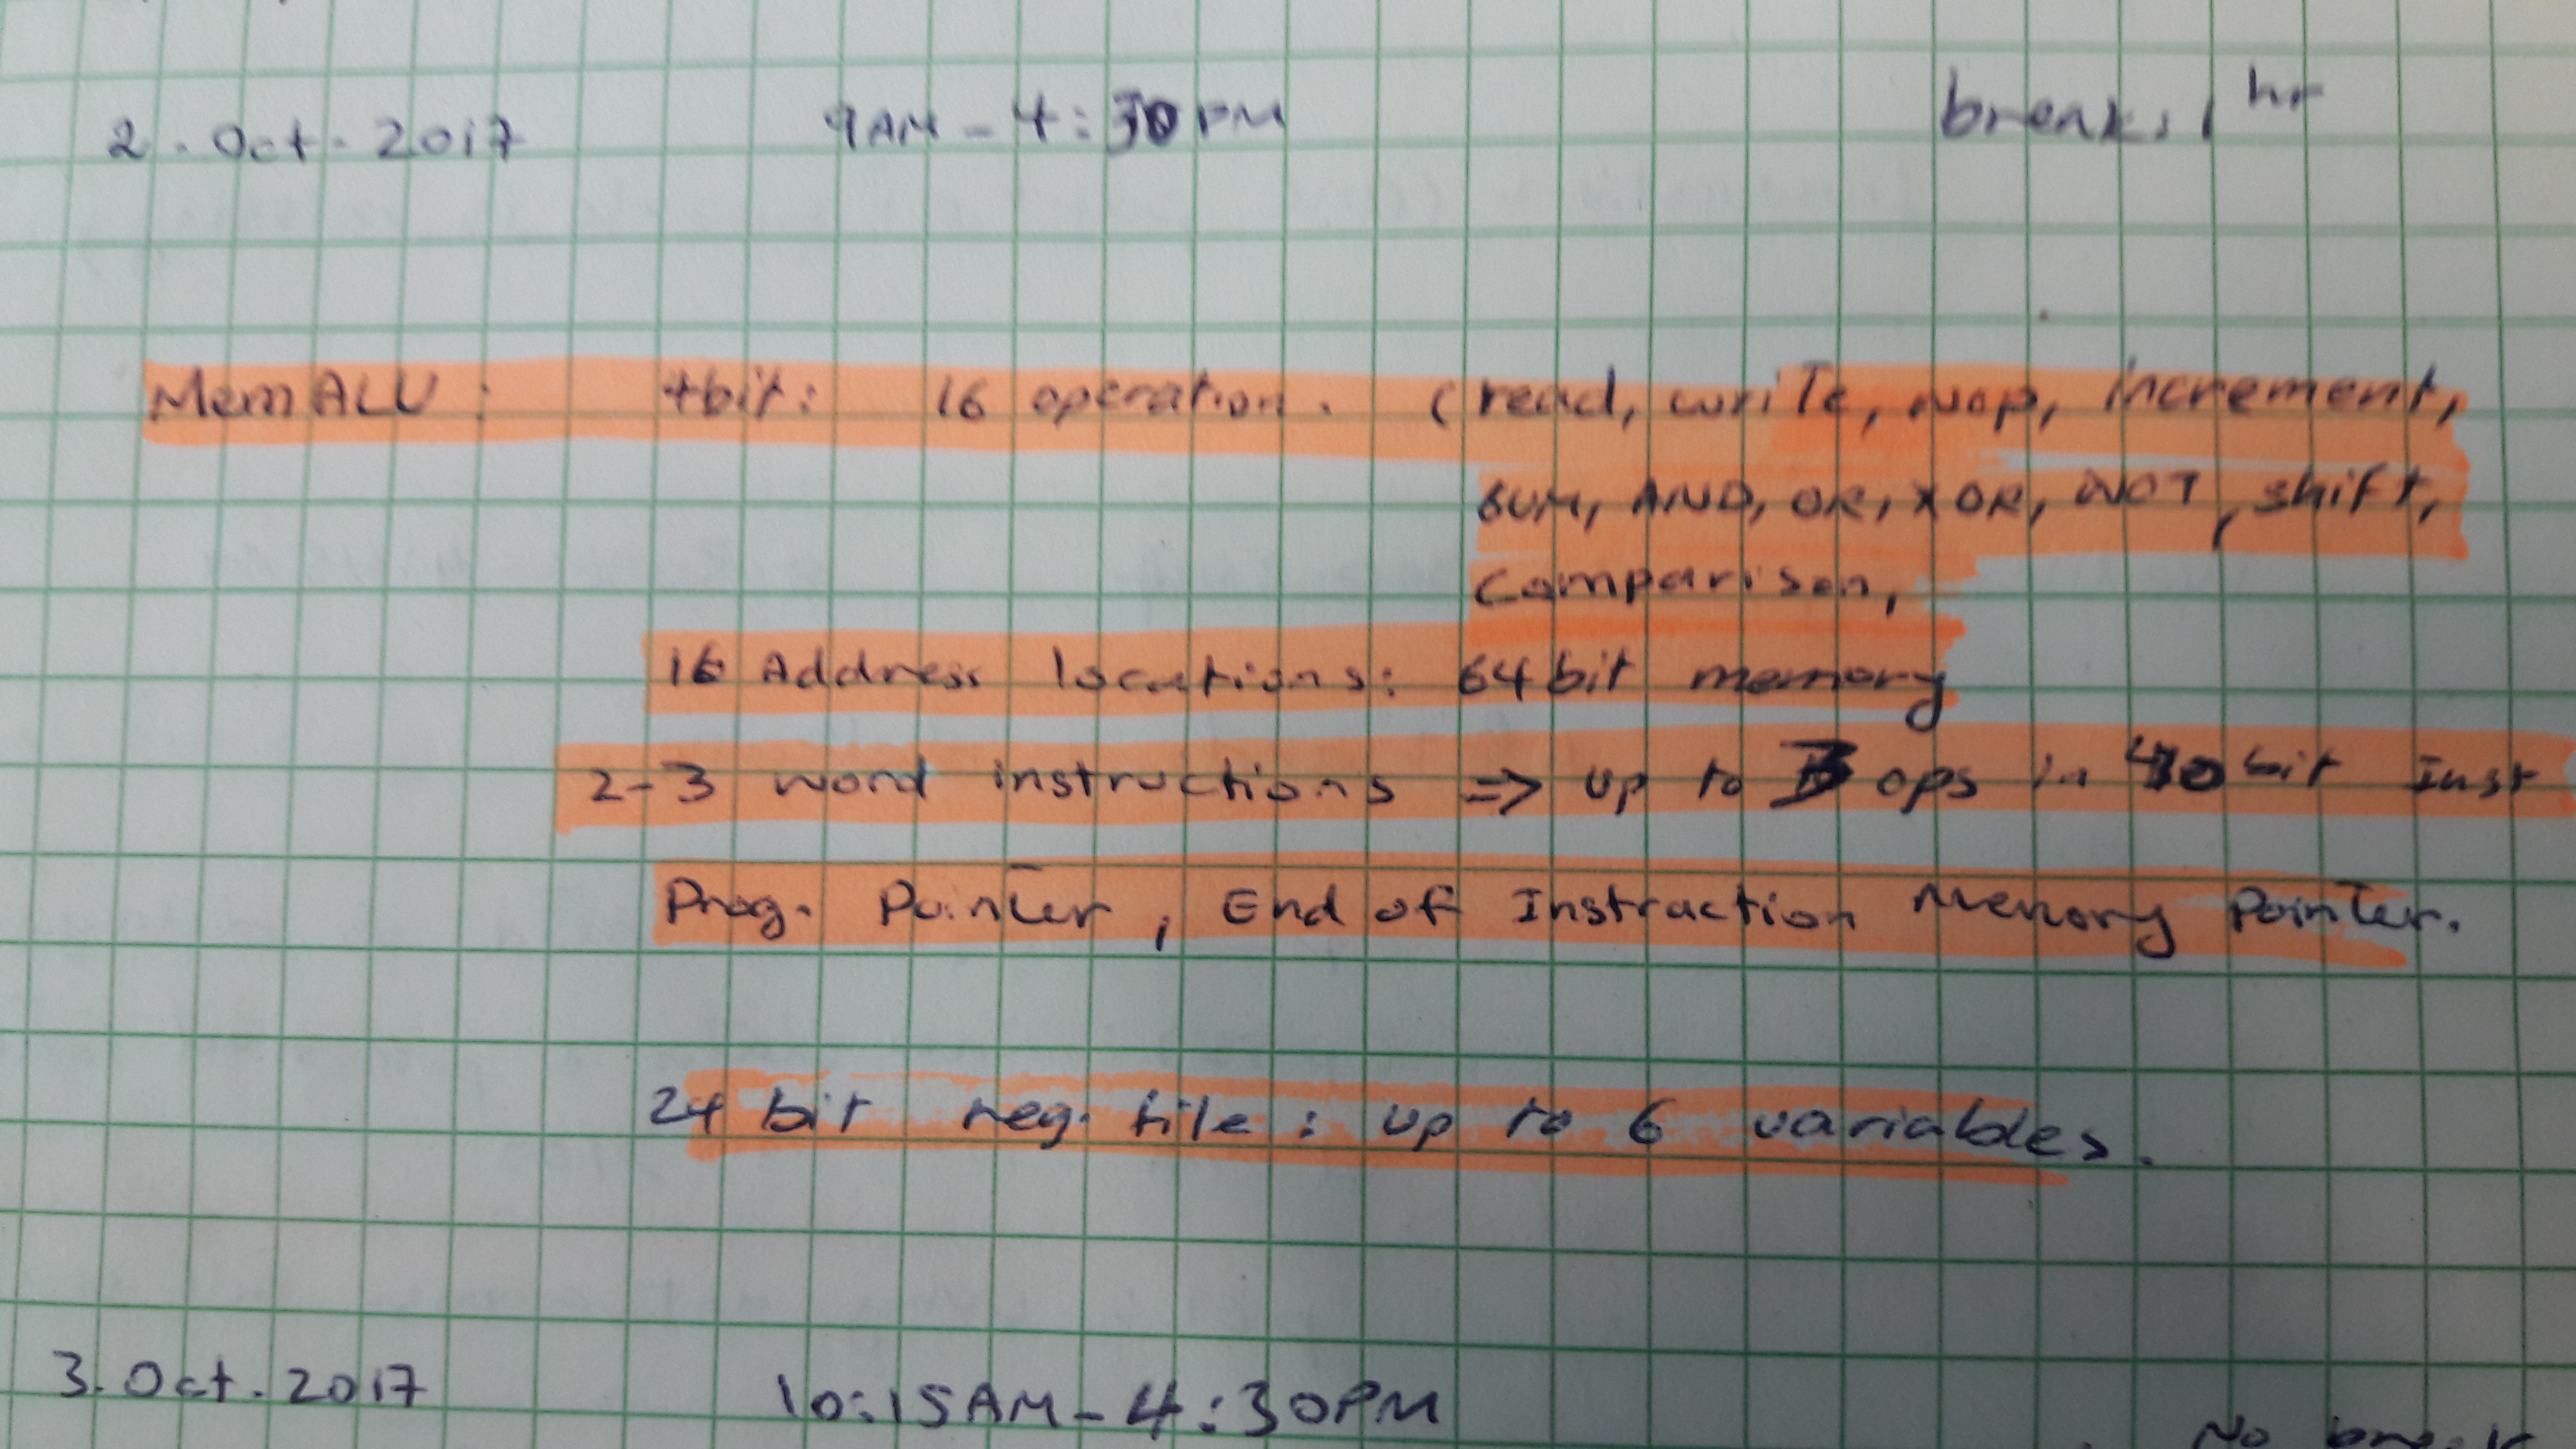 2. Oct. 2017 9AM - 4:30PM break 1 hr
MemALU : 4bit: 16 operation. (read, write, NOP, increment,
SUM, AND, OR, XOR, NOT, shift,
Comparison,
16 Address locations: 64 bit memory
2-3 word instructions => up to 3 ops in 40 bit inst
Prog. Pointer, End of Instraction memory Pointer.
24 bit reg. file: up to 6 variables.
3. Oct. 2017 10:15AM - 4:30PM No break